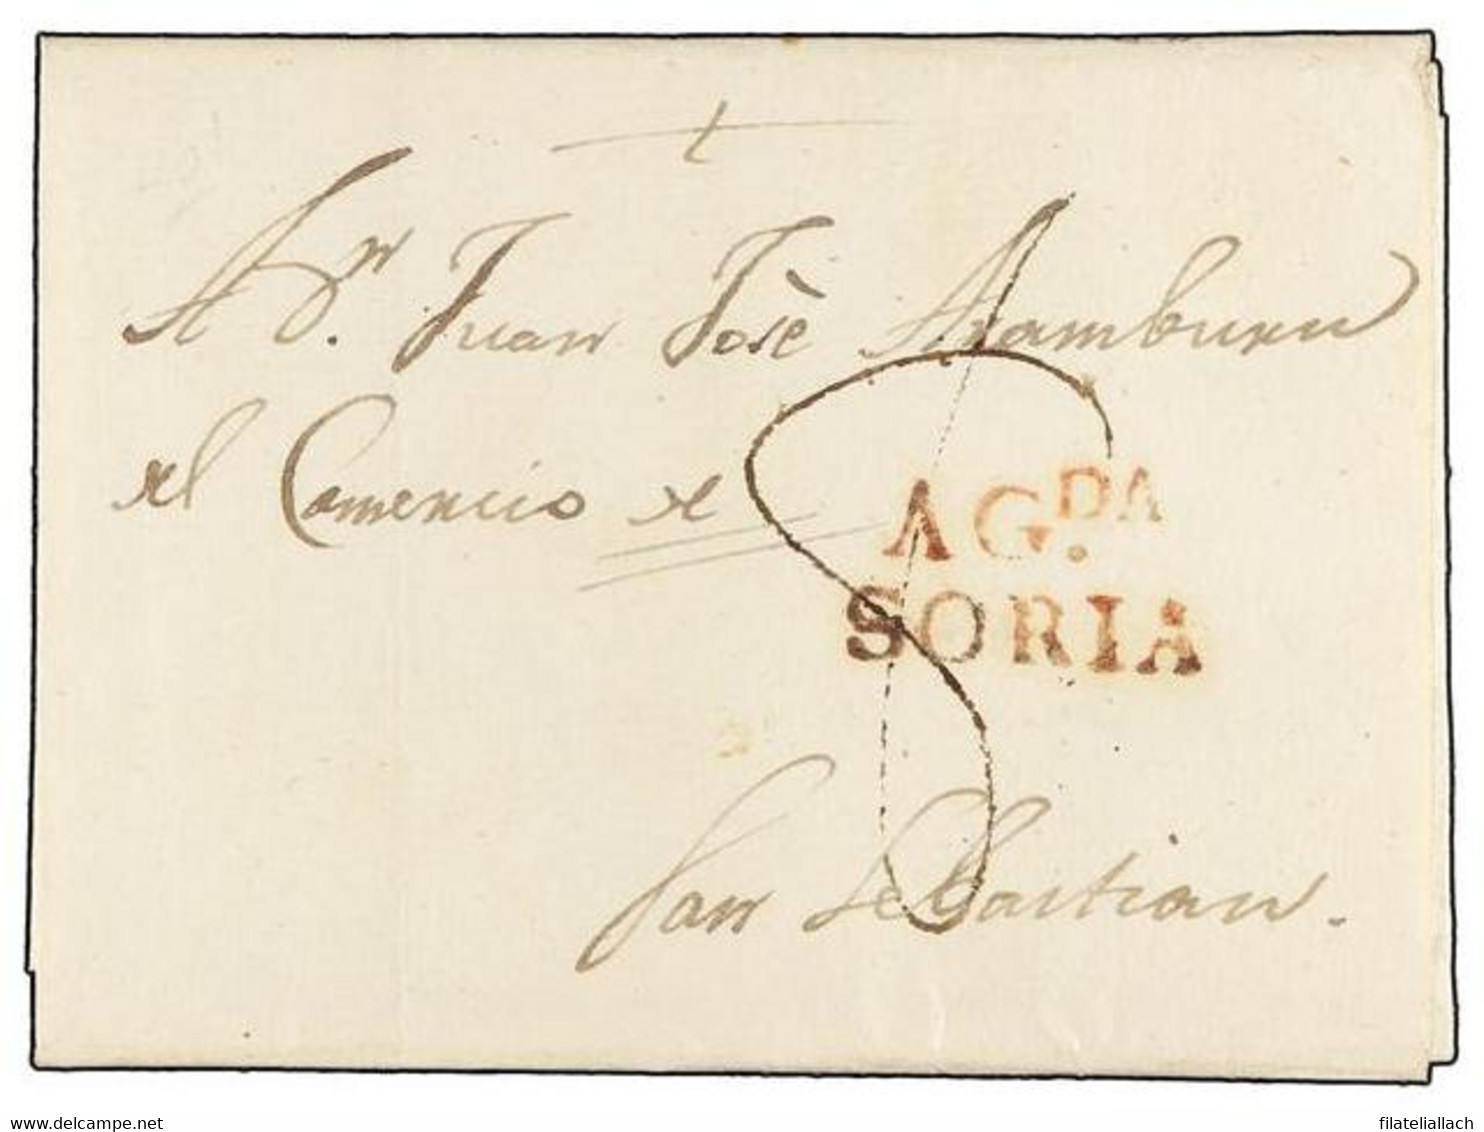 A Sr. Juan Josè Aramburu
del Comercio de
8
AG.DA
SORIA
San Sebastian.
https://www.delcampe.net
filateliallach